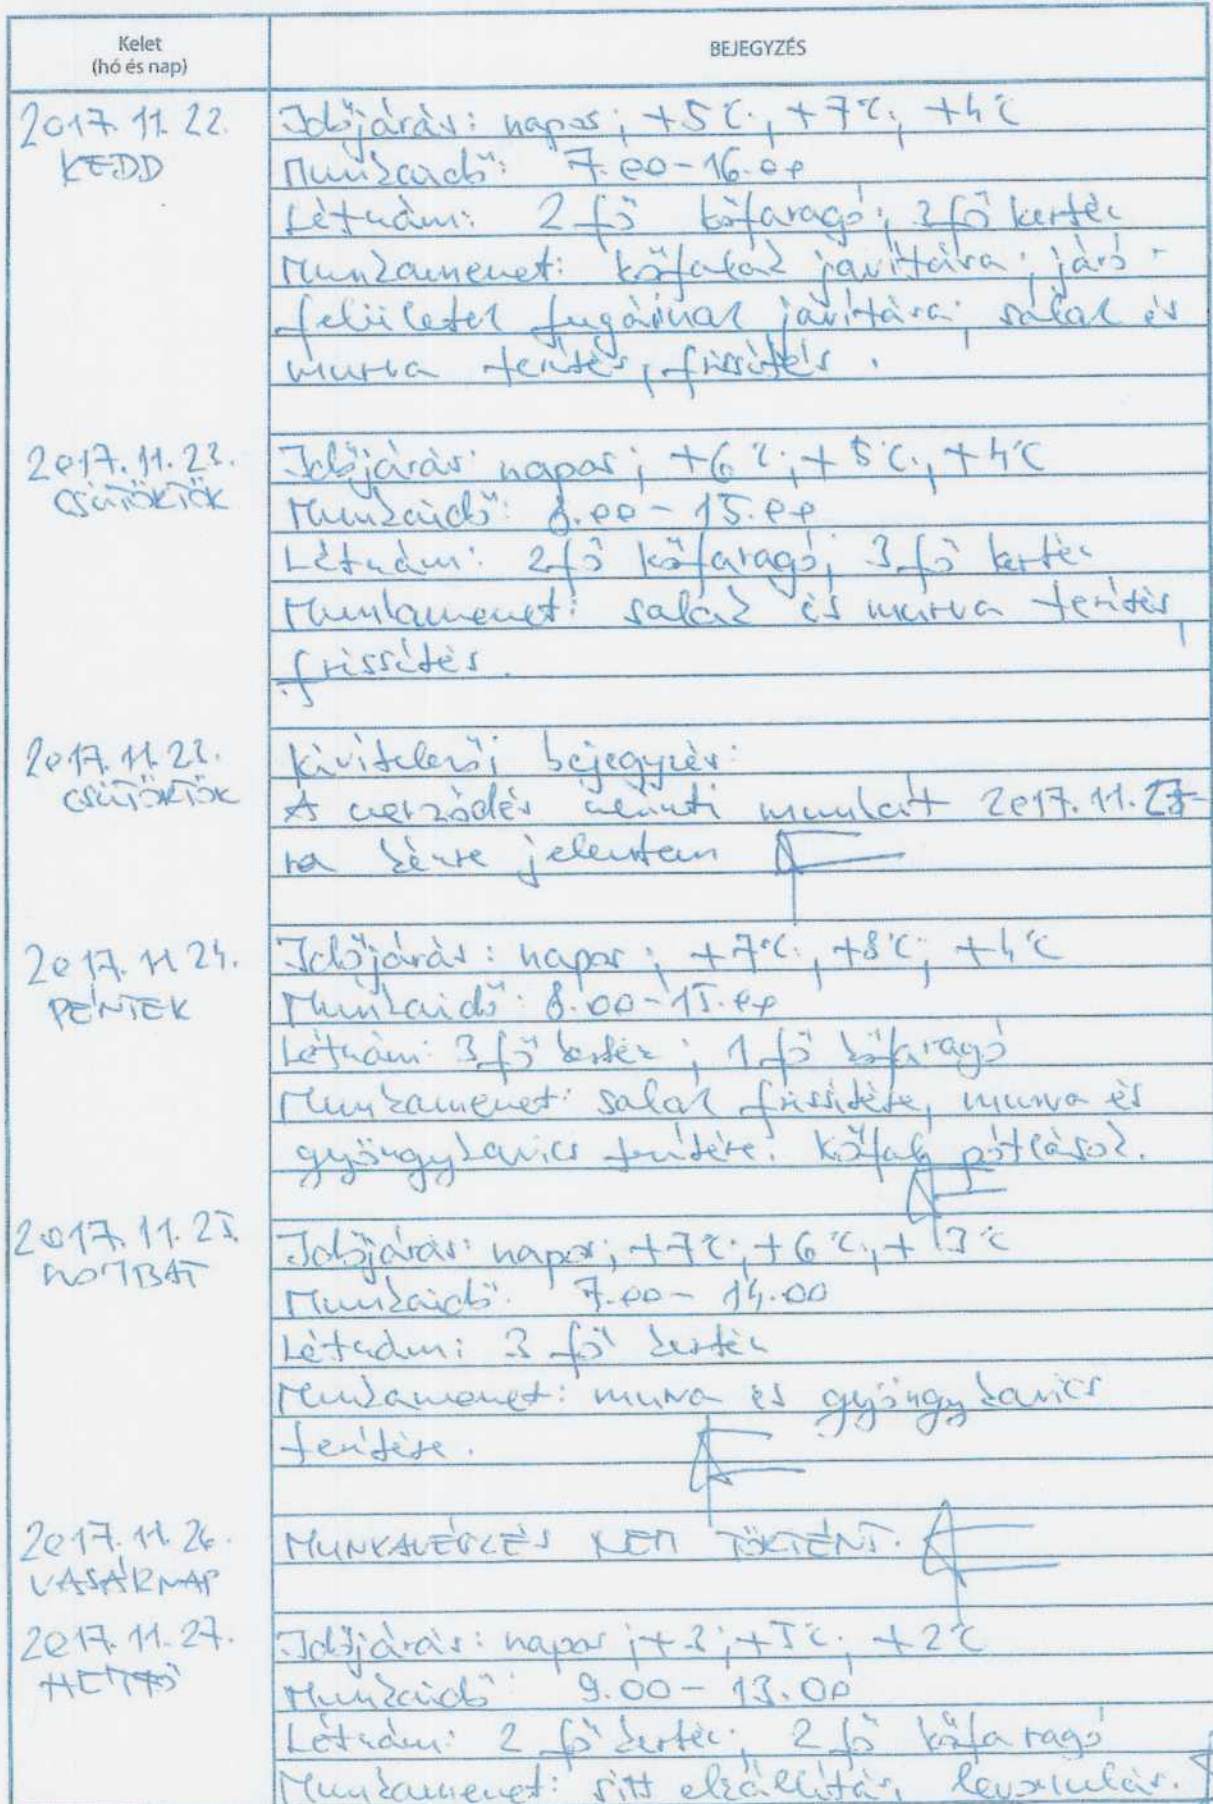 Kelet
(hó és nap)
BEJEGYZÉS
2017. 11. 22.
KEDD
Időjárás: napos; +5°C; +7°C; +4°C
Munkaidő: 7.00-16.00
Létszám: 2 fő kőfaragó; 3 fő kertész
Munkamenet: kőfalak javítása; járó-
felületek fugáinak javítása; salak és
murva terítés, frissítés.
2017. 11. 23.
CSÜTÖRTÖK
Időjárás: napos; +6°C; +5°C; +4°C
Munkaidő: 8.00-15.00
Létszám: 2 fő kőfaragó; 3 fő kertész
Munkamenet: salak és murva terítés,
frissítés.
2017. 11. 23.
CSÜTÖRTÖK
Kivitelezői bejegyzés:
A szerződés szerinti munkát 2017. 11. 27-
ra készre jelentem
2017. 11. 24.
PÉNTEK
Időjárás: napos; +7°C; +8°C; +4°C
Munkaidő: 8.00-15.00
Létszám: 3 fő kertész; 1 fő kőfaragó
Munkamenet: salak frissítése, murva és
gyöngykavics terítése. Kőfal pótlások.
2017. 11. 25.
SZOMBAT
Időjárás: napos; +7°C; +6°C; +3°C
Munkaidő: 7.00-14.00
Létszám: 3 fő kertész
Munkamenet: murva és gyöngykavics
terítése.
2017. 11. 26.
VASÁRNAP
MUNKAVÉGZÉS NEM TÖRTÉNT.
2017. 11. 27.
HÉTFŐ
Időjárás: napos; +3; +5°C; +2°C
Munkaidő: 9.00-13.00
Létszám: 2 fő kertész; 2 fő kőfaragó
Munkamenet: sitt elszállítás, levonulás.